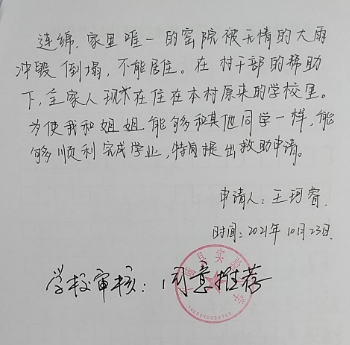 连绵，家里唯一的窑院被无情的大雨
冲毁倒塌，不能居住。在村干部的帮助
下，全家人现在住在本村原来的学校里。
为使我和姐姐能够和其他同学一样，能
够顺利完成学业，特此提出救助申请。
申请人：王珂睿
时间：2021年10月23日.
学校审核：同意推荐
县实